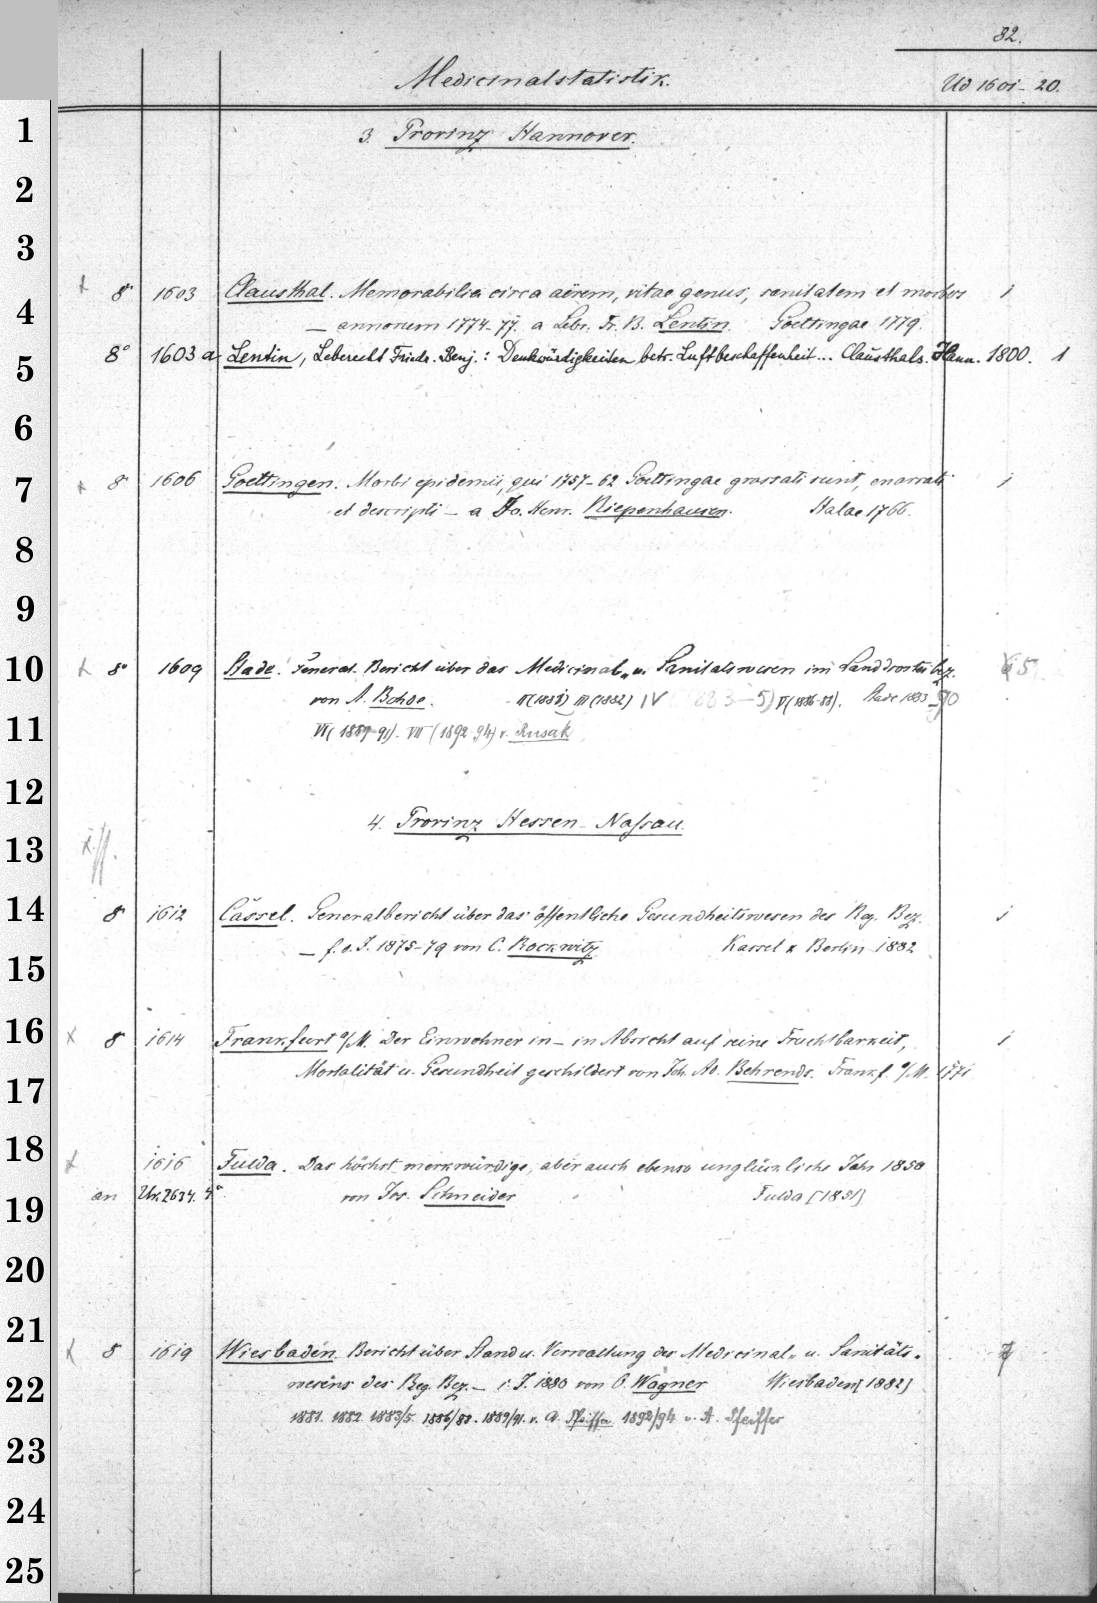 82.
Medicinalstatistik.
Ud 1601-20.
1
3. Provinz Hannover.
2
3
x 8° 1603 Clausthal. Memorabilia circa aërem, vitae genus, sanitatem et morbos 1
4
— annorum 1774-77. a Lebr. Fr. B. Lentin. Goettingae 1779.
5
8° 1603a Lentin, Leberecht Friedr. Benj.: Denkwürdigkeiten betr. Luftbeschaffenheit... Clausthals. Hann. 1800. 1
6
7
x 8° 1606 Goettingen. Morbi epidemii, qui 1757-62 Goettingae grassati sunt, enarrati 1
et descripti — a Jo. Henr. Riepenhausen. Halae 1766.
8
9
10
x 8° 1609 Stade. General-Bericht über das Medicinal- u. Sanitätswesen im Landdrostei bez. 5
von A. Bohde. II (1881) III (1882) IV (1883-5) V (1886-88). Stade 1883-90
11
VI (1889-91). VII (1892-94) v. Rusak
12
4. Provinz Hessen-Nassau.
13
x
14
8° 1612 Cassel. Generalbericht über das öffentliche Gesundheitswesen des Reg. Bez. 1
— f. d. J. 1875-79 von C. Rockwitz Kassel & Berlin 1882
15
16
x 8° 1614 Frankfurt a/M. Der Einwohner in — in Absicht auf seine Fruchtbarkeit, 1
17
Mortalität u. Gesundheit geschildert von Joh. Ad. Behrends. Frankf. a/M. 1771
18
x 1616 Fulda. Das höchst merkwürdige, aber auch ebenso unglückliche Jahr 1850
19
an Ur. 2634. 4° von Jos. Schneider Fulda [1851]
20
21
x 8 1619 Wiesbaden. Bericht über Stand u. Verwaltung des Medicinal- u. Sanitäts-
22
wesens des Reg. Bez. — i. J. 1880 von O. Wagner Wiesbaden [1882]
1881. 1882. 1883/5. 1886/88. 1889/91. v. A. Pfeiffer 1892/94 v. A. Pfeiffer
23
24
25